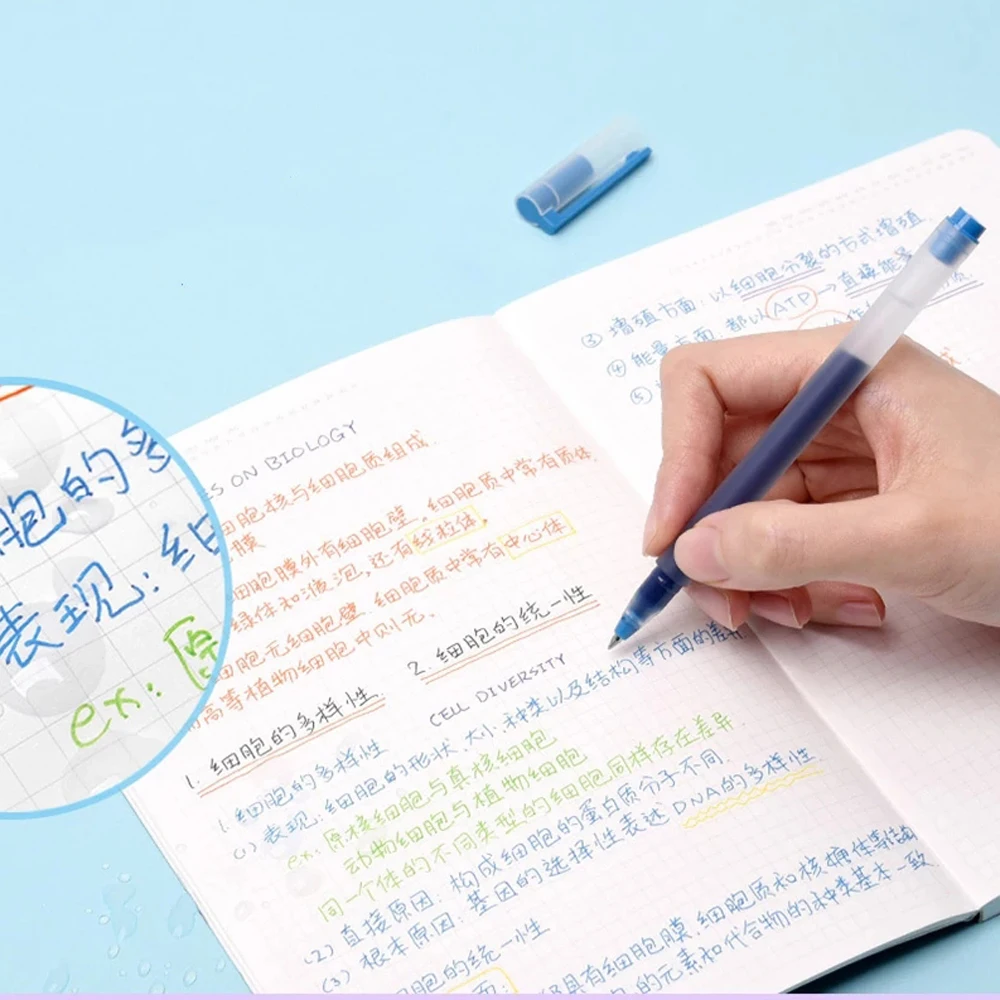 ES ON BIOLOGY
细胞核与细胞质组成.
膜
细胞膜外有细胞壁.细胞质中常有质体
绿体和液泡,还有线粒体.
细胞元细胞壁.细胞质中常有中心体
高等植物细胞中则元.
1.细胞的多样性
2.细胞的统一性
CELL DIVERSITY
1.细胞的多样性
(1)表现:细胞的形状.大小.种类以及结构等方面的差异
ex:原核细胞与真核细胞
动物细胞与植物细胞
同一个体的不同类型的细胞同样存在差异.
(2)直接原因:构成细胞的蛋白质分子不同.
(3)根本原因:基因的选择性表达 DNA的多样性
细胞的统一性
具有细胞膜.细胞质和核糖体等结构
的元素和化合物的种类基本一致
③增殖方面:以细胞分裂的方式增殖
④能量方面:都以ATP→直接能
⑤
胞的多
表现:细
ex:原